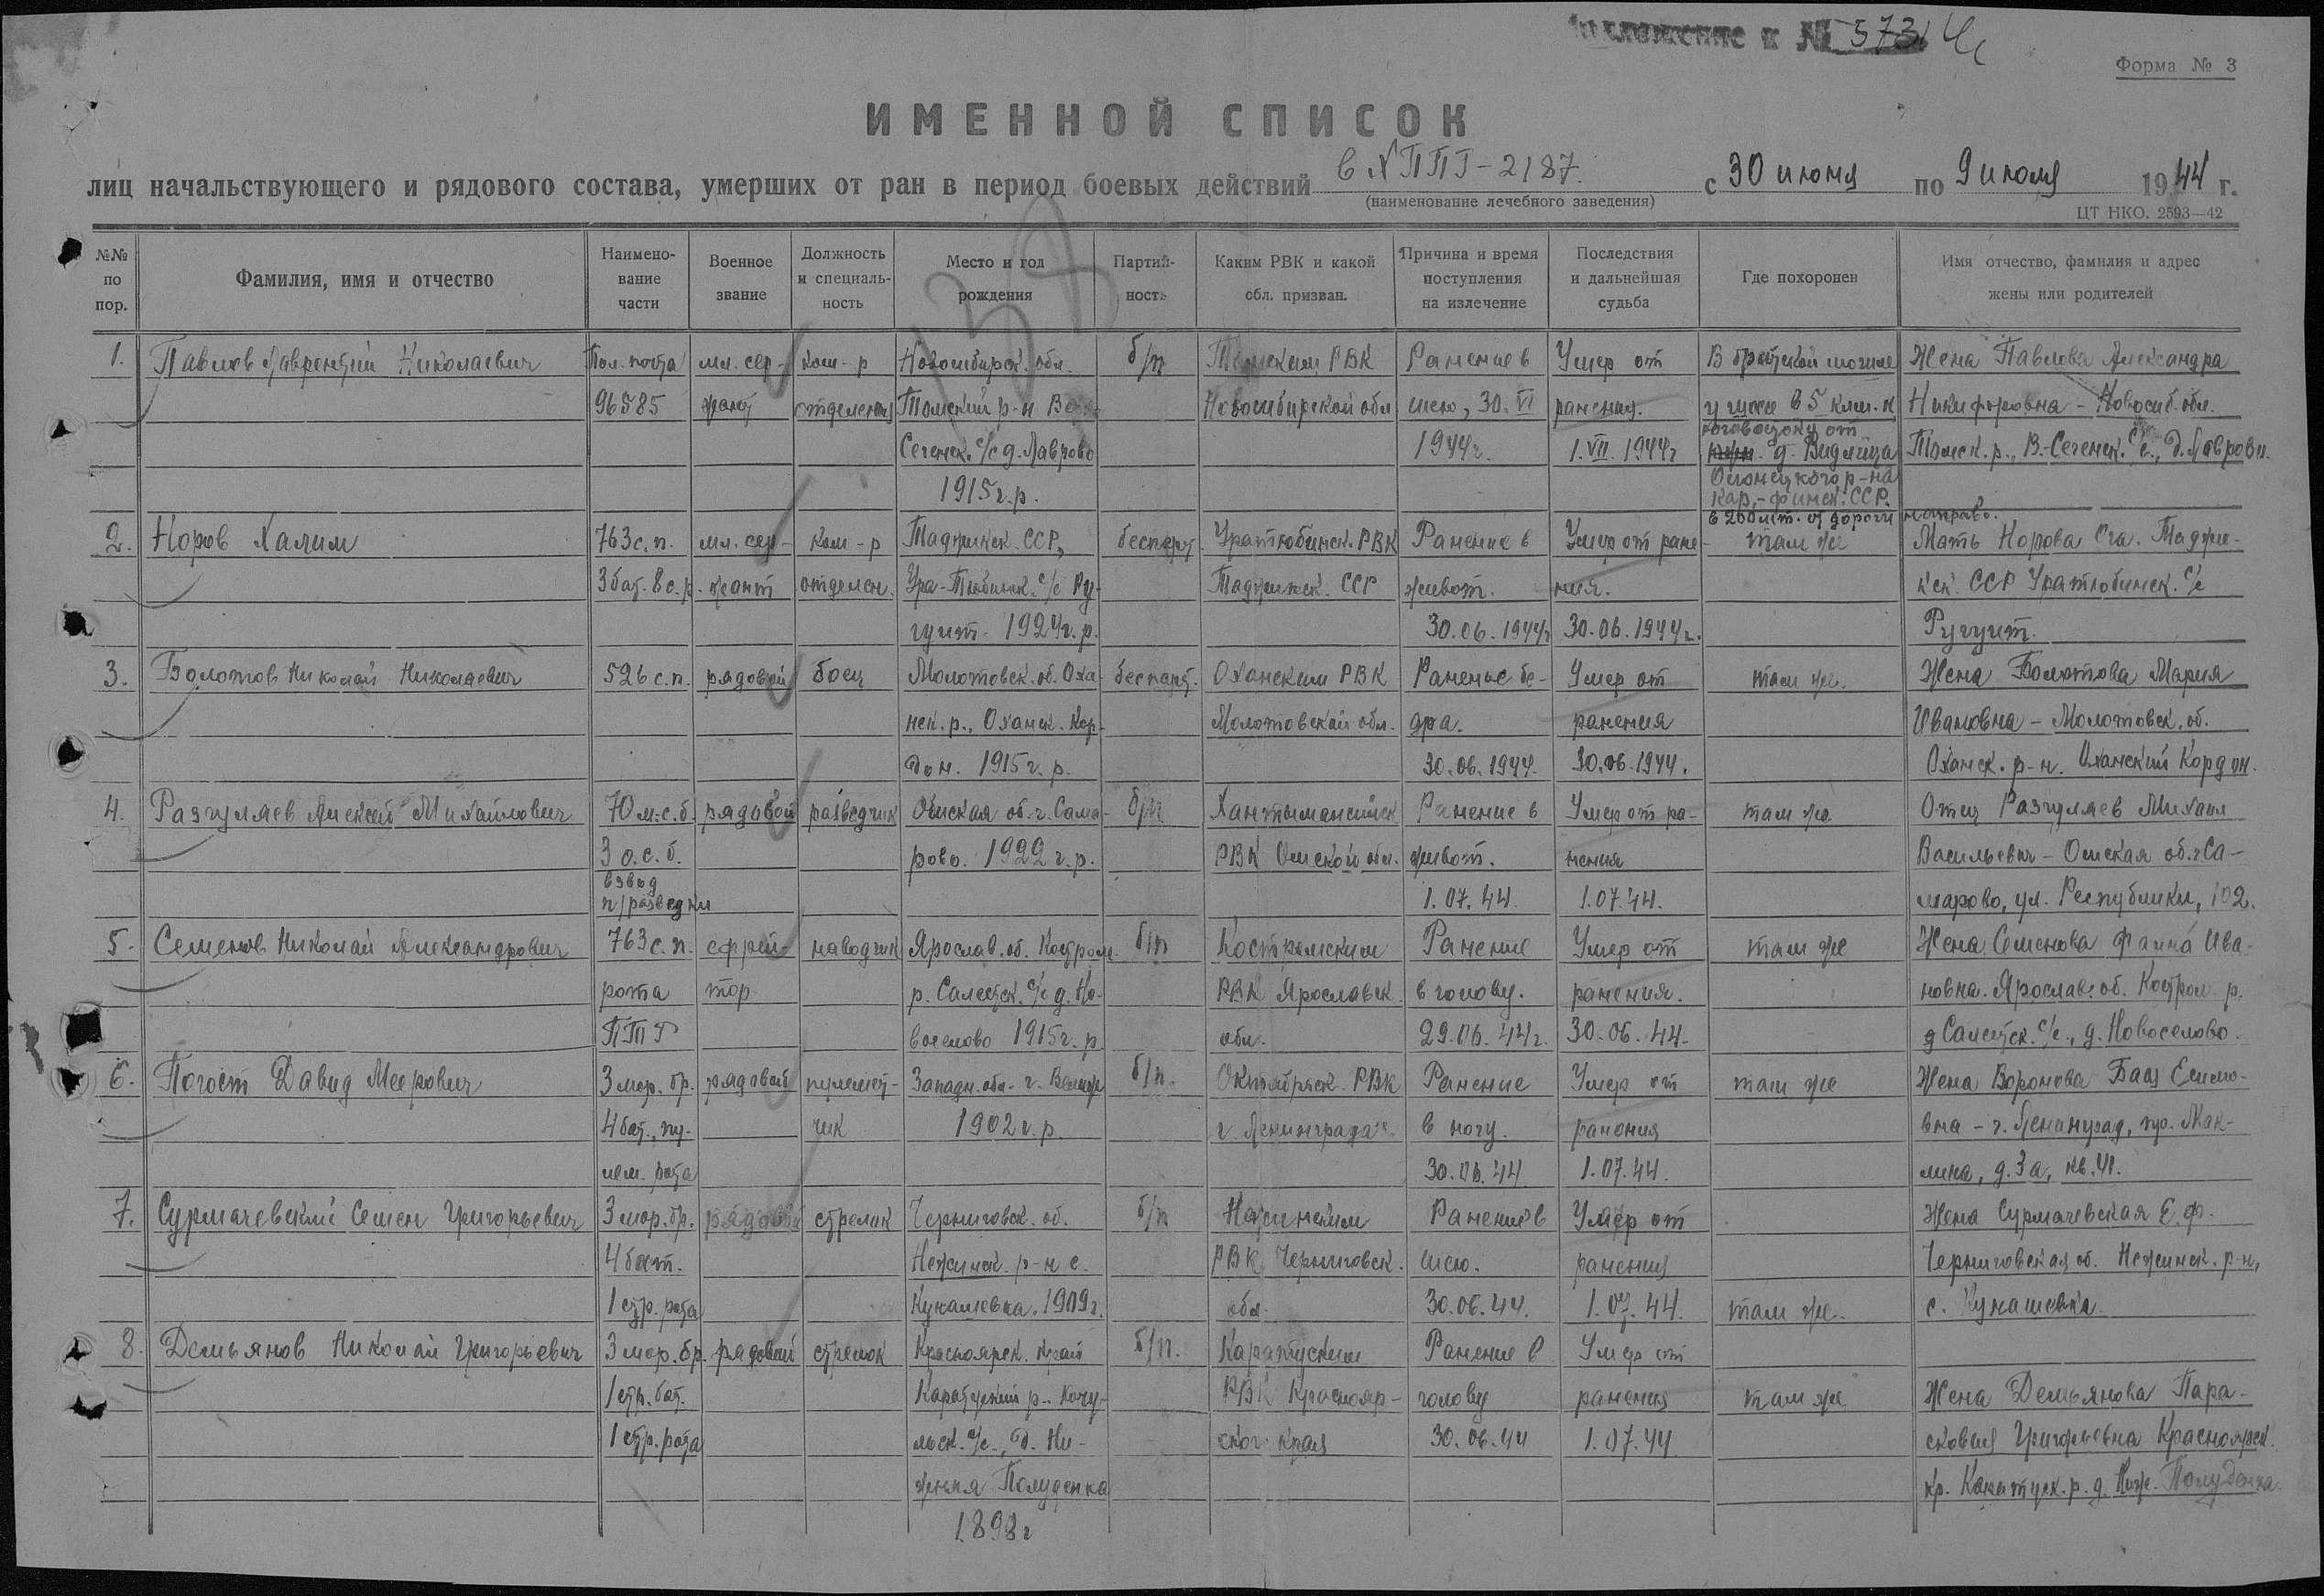 Приложение к № 573/4с
Форма № 3
ИМЕННОЙ СПИСОК
лиц начальствующего и рядового состава, умерших от ран в период боевых действий в ХППГ-2187. с 30 июня по 9 июля 1944 г.
(наименование лечебного заведения)
ЦТ НКО. 2593—42
№№ по пор.
Фамилия, имя и отчество
Наименование части
Военное звание
Должность и специальность
Место и год рождения
Партийность
Каким РВК и какой обл. призван.
Причина и время поступления на излечение
Последствия и дальнейшая судьба
Где похоронен
Имя отчество, фамилия и адрес жены или родителей
1. Павлов Лаврентий Николаевич Пол. почта мл. сер- ком-р Новосибирск. обл. б/п Томским РВК Ранение в Умер от В братской могиле Жена Павлова Александра
96585 жант отделения Томский р-н Новосибирской обл шею, 30. VI ранения. у шоссе в 5 клм. к Никифоровна - Новосиб. обл.
Сеченск. с/с д. Лаврово 1944г. 1. VII. 1944г юговостоку от д. Видлица Томск. р., В.-Сеченск. с/с., д. Лаврово.
1915г.р. Олонецкого р-на
Кар.-финск. ССР.
в 200 мт. от дороги направо.
2. Норов Халим 763 с.п. мл. сер- ком-р Таджикск. ССР, беспарт. Уратюбинск. РВК Ранение в Умер от ране- там же Мать Норова Таджи-
3 бат. 8 с.р. жант отделен. Ура-Тюбинск. с/с Ру- Таджикск. ССР живот. ния. кск. ССР Уратюбинск. с/с
гунт. 1924г.р. 30.06.1944г 30.06.1944г. Ругунт.
3. Болотов Николай Николаевич 526 с.п. рядовой боец Молотовск. об. Оха беспарт. Оханским РВК Ранение бе- Умер от там же. Жена Болотова Мария
нск. р., Оханск. Кор- Молотовской обл. дра. ранения Ивановна - Молотовск. об.
дон. 1915г.р. 30.06.1944. 30.06.1944. Оханск. р-н. Оханский Кордон.
4. Разгуляев Алексей Михайлович 70 м.с.б. рядовой разведчик Омская об. г. Сама- б/п Хантымансийск Ранение в Умер от ра- там же Отец Разгуляев Михаил
3 о.с.б. рово. 1922г.р. РВК Омской обл. живот. нения Васильевич - Омская об. г Са-
взвод
п/разведки 1.07.44. 1.07.44. марово, ул. Республики, 102.
5. Семенов Николай Александрович 763 с.п. ефрей- наводчик Ярослав. об. Костром. б/п Костромским Ранение Умер от там же Жена Семенова Фаина Ива-
рота тор р. Салетск. с/с д. Но- РВК Ярославск. в голову. ранения. новна. Ярослав. об. Костром. р.
ПТР воселово 1915г.р. обл. 29.06.44г. 30.06.44. Салетск. с/с., д. Новоселово.
6. Погост Давид Меерович 3 мор. бр. рядовой пулемет- Западн. обл. г. Велиж б/п. Октябрьск. РВК Ранение Умер от там же Жена Воронова Бася
4 бат., пу- чик 1902г.р. г. Ленинграда. в ногу. ранения вна - г. Ленинград, пр. Мак-
лем. рота 30.06.44 1.07.44. лина, д. 3а, кв. 41.
7. Сурмачевский Семен Григорьевич 3 мор. бр. рядовой стрелок Черниговск. об. б/п Нежинским Ранение в Умер от Жена Сурмачевская Е. Ф.
4 бат. Нежинск. р-н с. РВК Черниговск. шею. ранения Черниговская об. Нежинск. р-н,
1 стр. рота Кунашевка. 1909г. обл. 30.06.44. 1.07.44. там же. с. Кунашевка.
8. Демьянов Николай Григорьевич 3 мор. бр. рядовой стрелок Красноярск. край б/п. Каратузским Ранение в Умер от
1 стр. бат. Каратузский р-н. Качу- РВК Краснояр- голову ранения там же Жена Демьянова Пара-
1 стр. рота льск. с/с., д. Ни- ског. края 30.06.44 1.07.44 сковия Григорьевна Красноярск.
жняя Полуденка кр. Каратузк. р. д. Ниж. Полуденка.
1898г